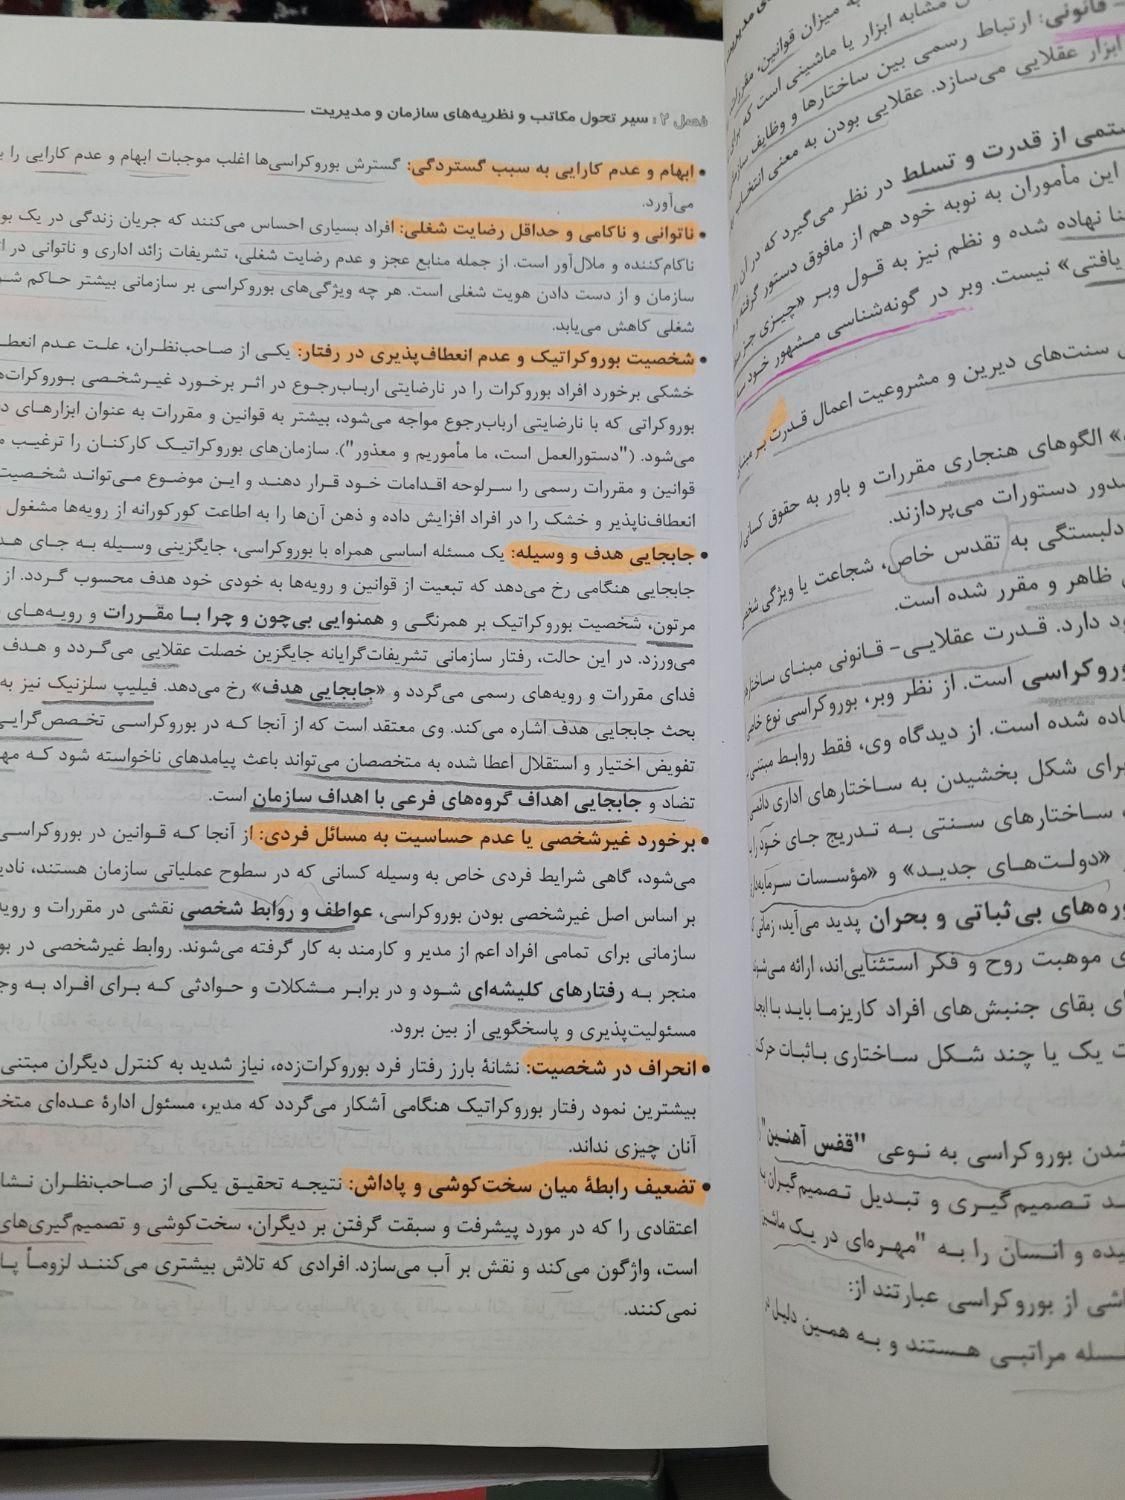 ی مدیریت
به میزان قوانین، مقررات
مشابه ابزار یا ماشینی است که برای
- قانونی: ارتباط رسمی بین ساختارها و وظایف سازمان
ابزار عقلایی می‌سازد. عقلایی بودن به معنی انتخاب
ستمی از قدرت و تسلط در نظر می‌گیرد که در آن
این مأموران به نوبه خود هم از مافوق دستور گرفته و
نا نهاده شده و نظم نیز به قول وبر «چیزی جز
یافتی» نیست. وبر در گونه‌شناسی مشهور خود
سنت‌های دیرین و مشروعیت اعمال قدرت بر مبنای
» الگوهای هنجاری مقررات و باور به حقوق کسانی
صدور دستورات می‌پردازند.
دلبستگی به تقدس خاص، شجاعت یا ویژگی شخص
ظاهر و مقرر شده است.
ود دارد. قدرت عقلایی- قانونی مبنای ساختار
وروکراسی است. از نظر وبر، بوروکراسی نوع خاص
اده شده است. از دیدگاه وی، فقط روابط مبتنی
برای شکل بخشیدن به ساختارهای اداری دانست
ساختارهای سنتی به تدریج جای خود را
«دولت‌های جدید» و «مؤسسات سرمایه‌داری
وره‌های بی‌ثباتی و بحران پدید می‌آید، زمانی
ی موهبت روح و فکر استثنایی‌اند، ارائه می‌شود
ای بقای جنبش‌های افراد کاریزما باید با ایجاد
ت یک یا چند شکل ساختاری باثبات حرکت
شدن بوروکراسی به نوعی "قفس آهنین"
ـد تصمیم‌گیری و تبدیل تصمیم‌گیران به
یده و انسان را به "مهره‌ای در یک ماشین
اشی از بوروکراسی عبارتند از:
سله مراتبی هستند و به همین دلیل در
فصل ۲ : سیر تحول مکاتب و نظریه‌های سازمان و مدیریت
• ابهام و عدم کارایی به سبب گستردگی: گسترش بوروکراسی‌ها اغلب موجبات ابهام و عدم کارایی را
می‌آورد.
• ناتوانی و ناکامی و حداقل رضایت شغلی: افراد بسیاری احساس می‌کنند که جریان زندگی در یک
ناکام‌کننده و ملال‌آور است. از جمله منابع عجز و عدم رضایت شغلی، تشریفات زائد اداری و ناتوانی در
سازمان و از دست دادن هویت شغلی است. هر چه ویژگی‌های بوروکراسی بر سازمانی بیشتر حاکم
شغلی کاهش می‌یابد.
• شخصیت بوروکراتیک و عدم انعطاف‌پذیری در رفتار: یکی از صاحب‌نظران، علت عدم انعطـ
خشکی برخورد افراد بوروکرات را در نارضایتی ارباب‌رجوع در اثر برخورد غیرشخصی بوروکرات‌
بوروکراتی که با نارضایتی ارباب‌رجوع مواجه می‌شود، بیشتر به قوانین و مقررات به عنوان ابزارهای
می‌شود. ("دستورالعمل است، ما مأموریم و معذور"). سازمان‌های بوروکراتیک کارکنان را ترغیب
قوانین و مقررات رسمی را سرلوحه اقدامات خود قرار دهند و این موضوع می‌تواند شخصیت
انعطاف‌ناپذیر و خشک را در افراد افزایش داده و ذهن آن‌ها را به اطاعت کورکورانه از رویه‌ها مشغول
• جابجایی هدف و وسیله: یک مسئله اساسی همراه با بوروکراسی، جایگزینی وسیله به جای
جابجایی هنگامی رخ می‌دهد که تبعیت از قوانین و رویه‌ها به خودی خود هدف محسوب گردد. از
مرتون، شخصیت بوروکراتیک بر همرنگی و همنوایی بی‌چون و چرا با مقررات و رویه‌های
می‌ورزد. در این حالت، رفتار سازمانی تشریفات‌گرایانه جایگزین خصلت عقلایی می‌گردد و هدف
فدای مقررات و رویه‌های رسمی می‌گردد و «جابجایی هدف» رخ می‌دهد. فیلیپ سلزنیک نیز به
بحث جابجایی هدف اشاره می‌کند. وی معتقد است که از آنجا که در بوروکراسی تخصص‌گرایی
تفویض اختیار و استقلال اعطا شده به متخصصان می‌تواند باعث پیامدهای ناخواسته شود که
تضاد و جابجایی اهداف گروه‌های فرعی با اهداف سازمان است.
• برخورد غیرشخصی یا عدم حساسیت به مسائل فردی: از آنجا که قوانین در بوروکراسی
می‌شود، گاهی شرایط فردی خاص به وسیله کسانی که در سطوح عملیاتی سازمان هستند،
بر اساس اصل غیرشخصی بودن بوروکراسی، عواطف و روابط شخصی نقشی در مقررات و
سازمانی برای تمامی افراد اعم از مدیر و کارمند به کار گرفته می‌شوند. روابط غیرشخصی در
منجر به رفتارهای کلیشه‌ای شود و در برابر مشکلات و حوادثی که برای افراد به
مسئولیت‌پذیری و پاسخگویی از بین برود.
• انحراف در شخصیت: نشانهٔ بارز رفتار فرد بوروکرات‌زده، نیاز شدید به کنترل دیگران مبتنی
بیشترین نمود رفتار بوروکراتیک هنگامی آشکار می‌گردد که مدیر، مسئول ادارهٔ عده‌ای
آنان چیزی نداند.
• تضعیف رابطهٔ میان سخت‌کوشی و پاداش: نتیجه تحقیق یکی از صاحب‌نظران
اعتقادی را که در مورد پیشرفت و سبقت گرفتن بر دیگران، سخت‌کوشی و تصمیم‌گیری‌های
است، واژگون می‌کند و نقش بر آب می‌سازد. افرادی که تلاش بیشتری می‌کنند لزوماً
نمی‌کنند.